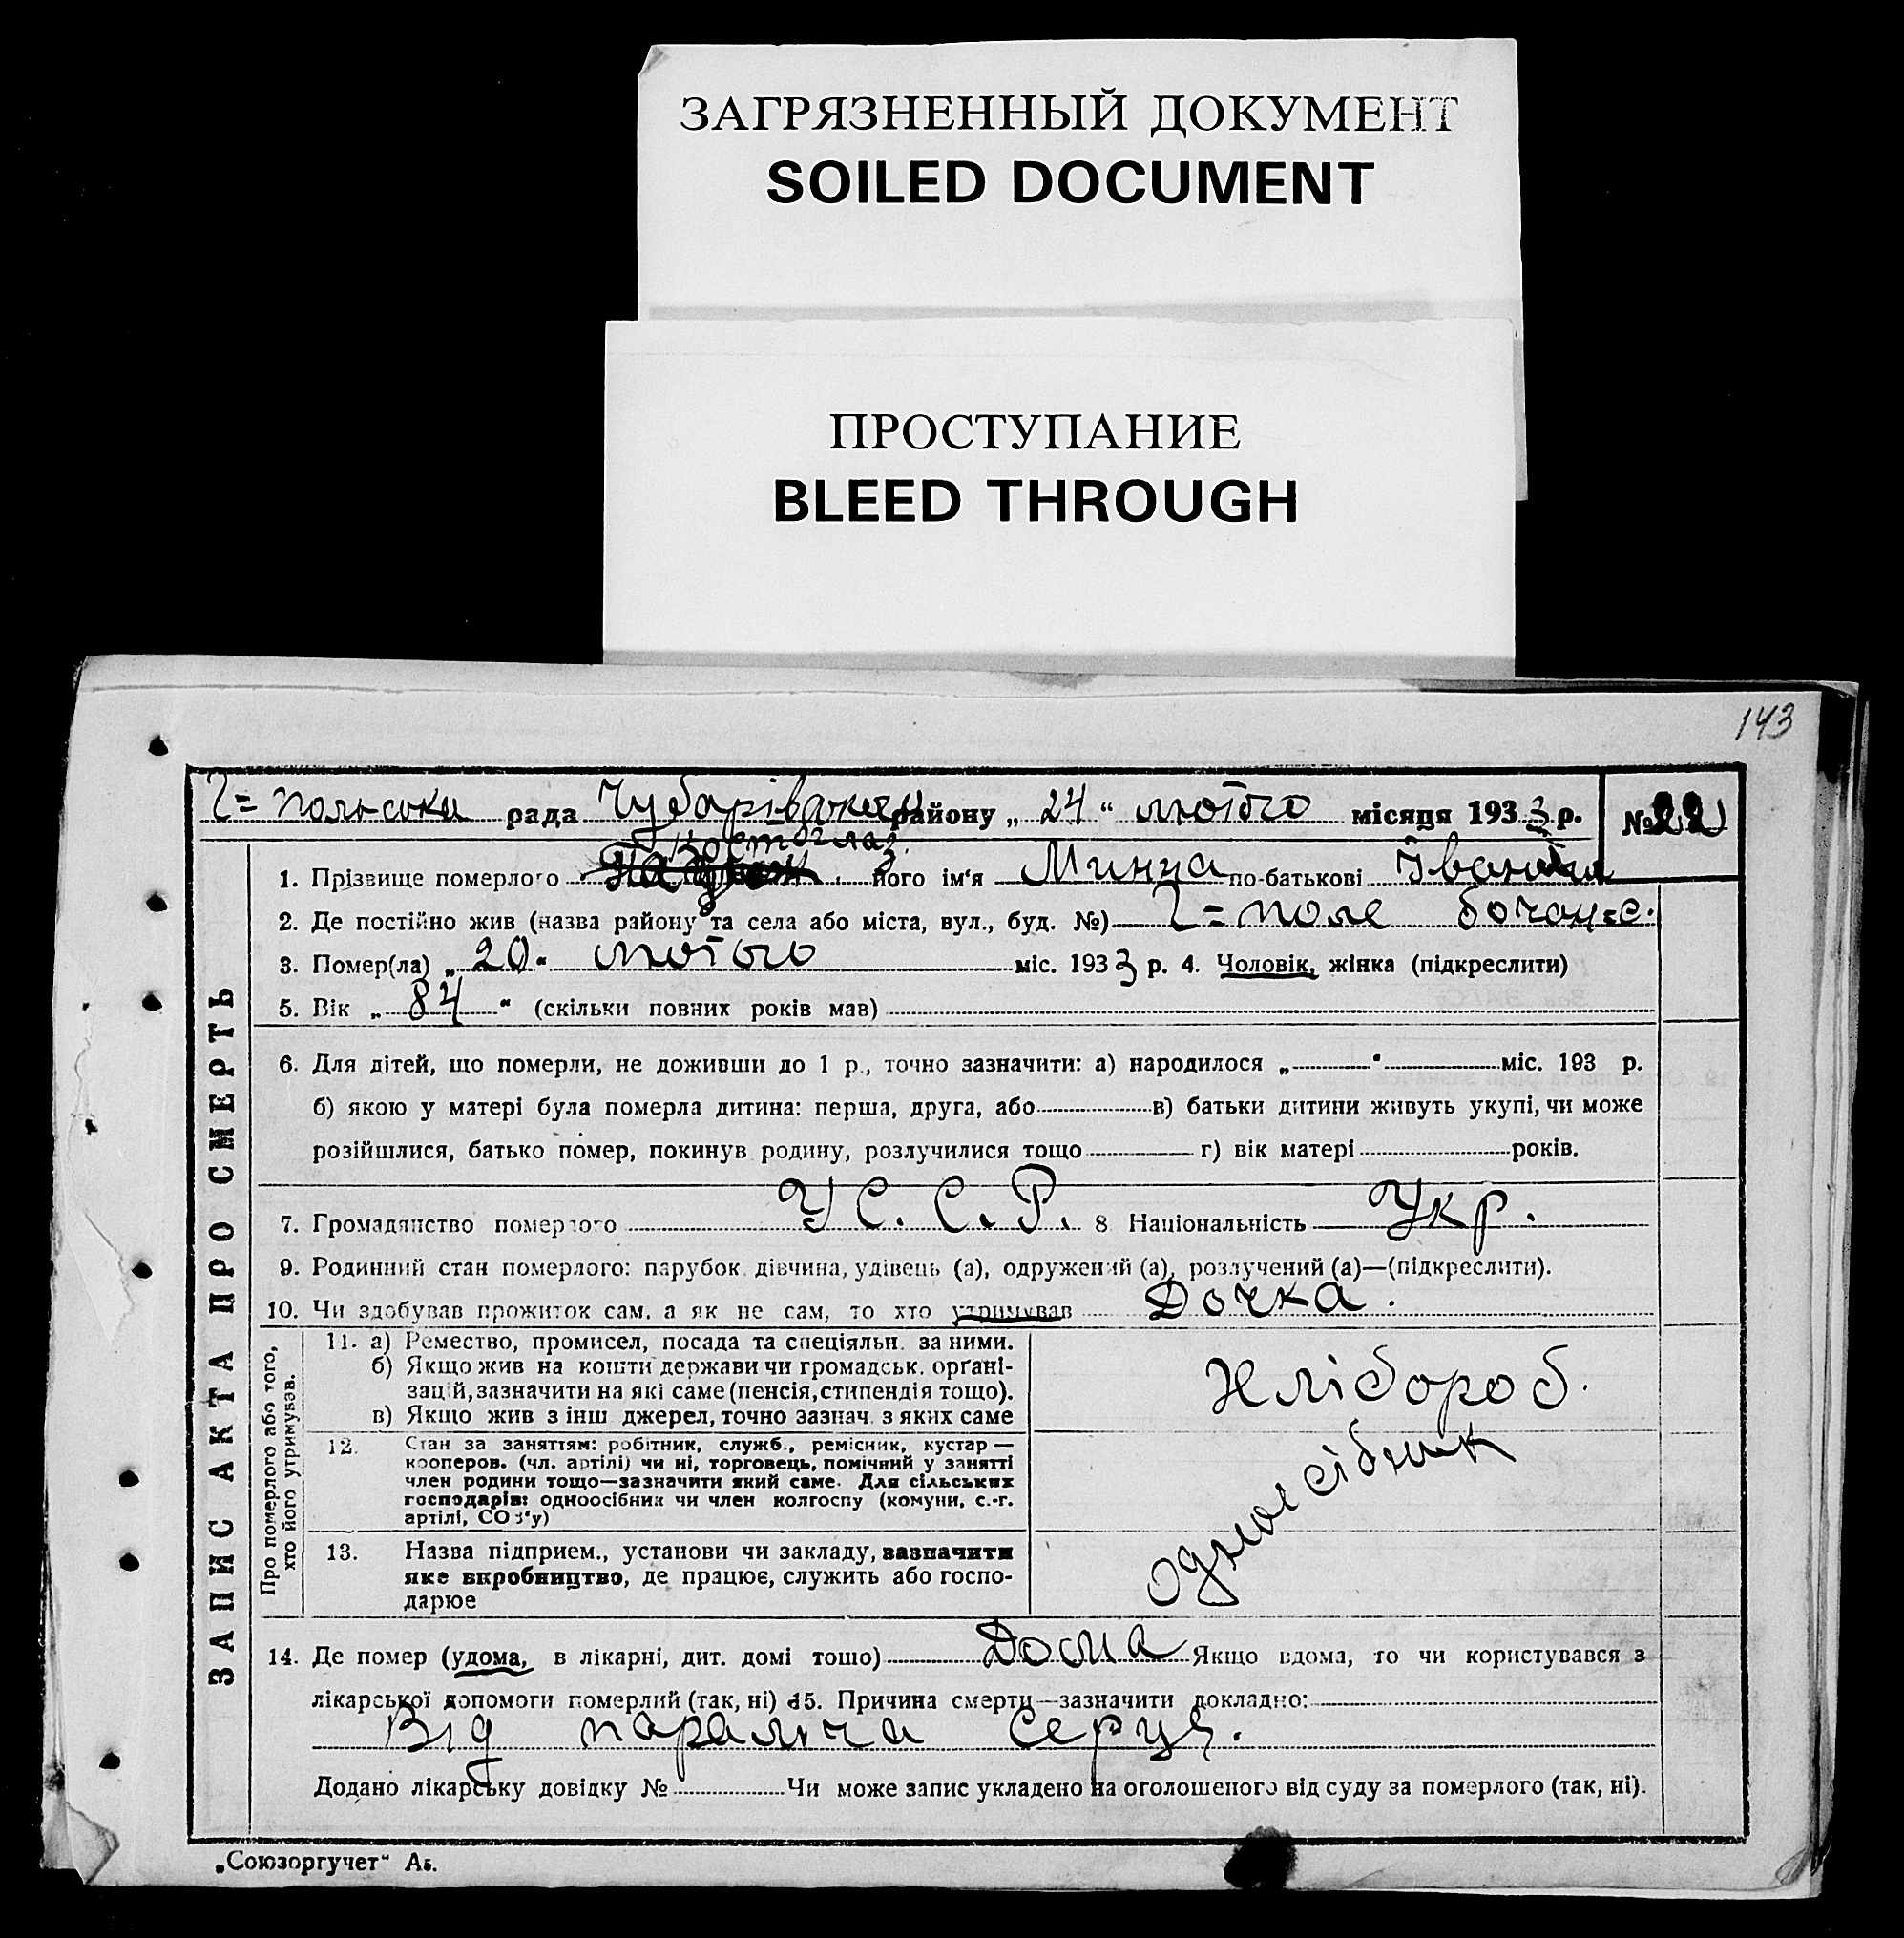 ЗАГРЯЗНЕННЫЙ ДОКУМЕНТ
SOILED DOCUMENT
ПРОСТУПАНИЕ
BLEED THROUGH
143
Г=польська рада Чубарівський району „ 24 “ лютого місяця 1933 р. № 22
Костоглаз
1. Прізвище померлого його ім'я Минна по-батькові
2. Де постійно жив (назва району та села або міста, вул., буд. №) Г=поле
3. Помер(ла) „ 20 “ лютого міс. 1933 р. 4. Чоловік, жінка (підкреслити)
5. Вік „ 84 “ (скільки повних років мав)
6. Для дітей, що померли, не доживши до 1 р., точно зазначити: а) народилося „ “ міс. 193 р.
б) якою у матері була померла дитина: перша, друга, або в) батьки дитини живуть укупі, чи може
розійшлися, батько помер, покинув родину, розлучилися тощо г) вік матері років.
7. Громадянство померлого У С. С. Р. 8 Національність Укр.
9. Родинний стан померлого: парубок, дівчина, удівець (а), одружений (а), розлучений (а)—(підкреслити).
10. Чи здобував прожиток сам, а як не сам, то хто утримував Дочка.
ЗАПИС АКТА ПРО СМЕРТЬ
Про померлого або того,
хто його утримував.
11. а) Ремество, промисел, посада та спеціяльн. за ними.
б) Якщо жив на кошти держави чи громадськ. орґані-
зацій, зазначити на які саме (пенсія, стипендія тощо).
в) Якщо жив з інш джерел, точно зазнач. з яких саме
Хлібороб.
12. Стан за заняттям: робітник, служб., ремісник, кустар —
кооперов. (чл. артілі) чи ні, торговець, помічний у занятті
член родини тощо—зазначити який саме. Для сільських
господарів: одноосібник чи член колгоспу (комуни, с.-г.
артілі, СОЗ'у)
одноосібник
13. Назва підприєм., установи чи закладу, зазначити
яке виробництво, де працює, служить або госпо-
дарює
14. Де помер (удома, в лікарні, дит. домі тощо) Дома Якщо вдома, то чи користувався з
лікарської допомоги померлий (так, ні) 15. Причина смерти—зазначити докладно:
Від параліча серця.
Додано лікарську довідку № Чи може запис укладено на оголошеного від суду за померлого (так, ні).
„Союзоргучет“ Аб.